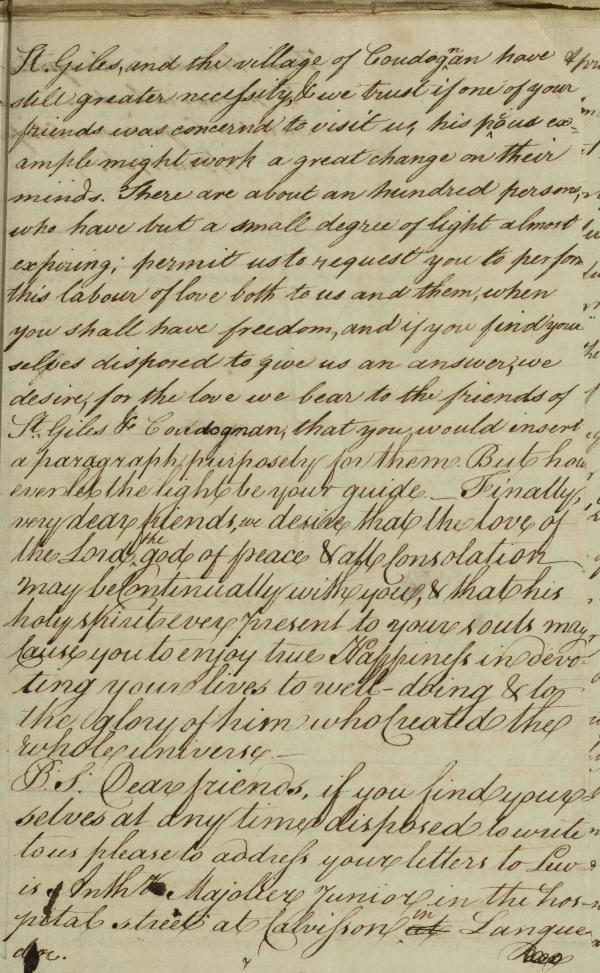 St. Giles, and the village of Coudognan have
still greater necessity, & we trust if one of your
friends was concernd to visit us, his pious ex=
ample might work a great change on their
minds. There are about an hundred persons,
who have but a small degree of light almost
expiring; permit us to request you to perform
this labour of love both to us and them, when
you shall have freedom, and if you find your
selves disposed to give us an answer, we
desire, for the love we bear to the friends of
St. Giles & Coudognan, that you would insert
a paragraph purposely for them. But how
ever let the light be your guide. — Finally,
very dear friends, we desire that the love of
the Lord, the god of peace & all Consolation
may be Continually with you, & that his
holy spirit ever present to your souls may
Cause you to enjoy true Happiness in devo-
ting your lives to well-doing & to
the glory of him who Created the
whole universe —
P.S. Dear friends, if you find your
selves at any time disposed to write
to us please to address your letters to Lew=
is Majolier Junior in the hos-
pital street at Calvisson at in Langue
doc.